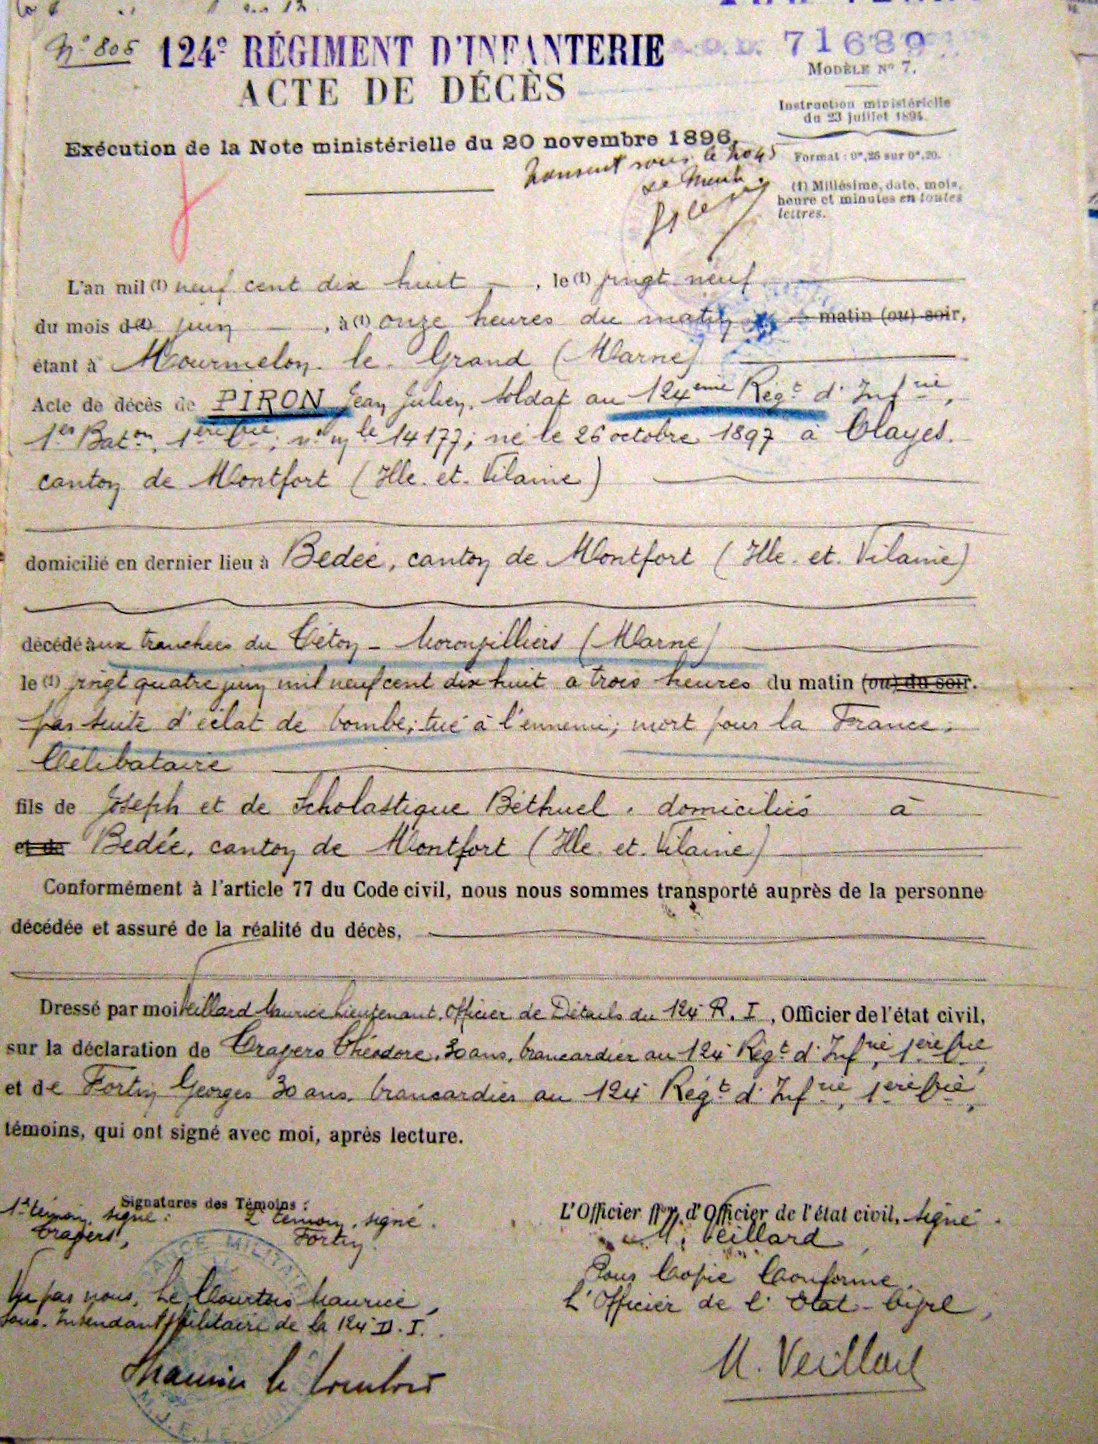 N° 805
124e RÉGIMENT D'INFANTERIE
71689
ACTE DE DÉCÈS
MODÈLE N° 7.
Instruction ministérielle
du 23 juillet 1894.
Exécution de la Note ministérielle du 20 novembre 1896.
Format : 0m,26 sur 0m,20.
(1) Millésime, date, mois,
heure et minutes en toutes
lettres.
L'an mil (1) neuf cent dix huit, le (1) vingt neuf
du mois de (1) juin, à (1) onze heures du matin matin (ou) soir,
étant à Mourmelon-le-Grand (Marne)
Acte de décès de PIRON Jean Julien, soldat au 124eme Régt d'Infrie,
1er Baton, 1ere Cie, n° mle 14177; né le 26 octobre 1897 à Clayes.
canton de Montfort (Ille-et-Vilaine)
domicilié en dernier lieu à Bedée, canton de Montfort (Ille-et-Vilaine)
décédé aux tranchées du Téton - Moronvilliers (Marne)
le (1) vingt quatre juin mil neuf cent dix huit à trois heures du matin (ou) du soir.
par suite d'éclat de bombe; tué à l'ennemi; mort pour la France.
Célibataire
fils de Joseph et de Scholastique Béthuel. domiciliés à
et de Bedée, canton de Montfort (Ille-et-Vilaine)
Conformément à l'article 77 du Code civil, nous nous sommes transporté auprès de la personne
décédée et assuré de la réalité du décès,
Dressé par moi Veillard Maurice Lieutenant, Officier de Détails du 124e R. I., Officier de l'état civil,
sur la déclaration de Tragers Théodore, 30 ans, brancardier au 124e Régt d'Infrie, 1ere Cie
et de Fortin Georges 30 ans, brancardier au 124e Régt d'Infrie, 1ere Cie,
témoins, qui ont signé avec moi, après lecture.
Signatures des Témoins :
1er témoin, signé :
Tragers,
2e témoin, signé.
Fortin.
L'Officier ffons d'Officier de l'état civil, signé.
M. Veillard
Pour Copie Conforme.
L'Officier de l'Etat-Civil,
M. Veillard
Vu par nous, Le Courtois Maurice,
Sous-Intendant Militaire de la 124e D.I.